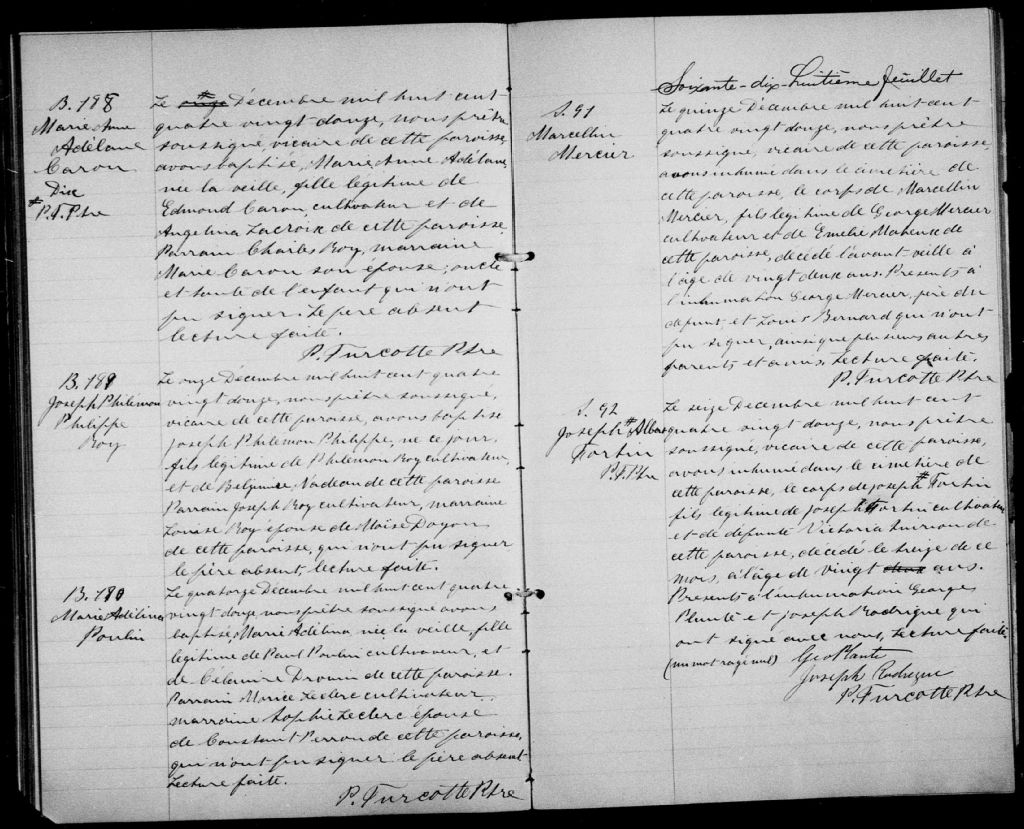 B. 188
Marie Anne
Adélaine
Caron
Dix
# P.T. Ptre
Le # onze Décembre mil huit cent
quatre vingt douze, nous prêtre
soussigné, vicaire de cette paroisse
avons baptisé, Marie Anne Adélaine,
née la veille, fille legitime de
Edmond Caron, cultivateur et de
Angelina Lacroix de cette paroisse
Parrain Charles Roy, marraine
Marie Caron son épouse; oncle
et tante de l'enfant qui n'ont
pu signer. Le pere absent
lecture faite.
P. Turcotte Ptre
B. 189
Joseph Philemon
Philippe
Roy
Le onze Décembre mil huit cent quatre
vingt douze, nous prêtre soussigné,
vicaire de cette paroisse, avons baptisé
Joseph Philemon Philippe, né ce jour,
fils legitime de Philemon Roy cultivateur,
et de Nadeau de cette paroisse
Parrain Joseph Roy cultivateur, marraine
Louise Roy épouse de Moïse Doyon
de cette paroisse, qui n'ont pu signer
le père absent, lecture faite.
B. 190
Marie Adélina
Poulin
Le quatorze Décembre mil huit cent quatre
vingt douze nous prêtre soussigné avons
baptisé, Marie Adélina, née la veille, fille
legitime de Paul Poulin cultivateur, et
de Célanire Drouin de cette paroisse.
Parrain Leclerc cultivateur
marraine Sophie Leclerc épouse
de Constant Perron de cette paroisse,
qui n'ont pu signer le père absent
Lecture faite.
P. Turcotte Ptre
Soixante-dix-huitième feuillet
S. 91
Marcellin
Mercier
Le quinze Décembre mil huit cent
quatre vingt douze, nous prêtre
soussigné, vicaire de cette paroisse,
avons inhumé dans le cimetière de
cette paroisse, le corps de Marcellin
Mercier, fils legitime de George Mercier
cultivateur et de Emelie Maheux de
cette paroisse, décédé l'avant veille à
l'âge de vingt deux ans. Presents à
l'inhumation George Mercier, père du
defunt, et Louis Bernard qui n'ont
pu signer, ainsi que plusieurs autres
parents et amis. Lecture faite.
P. Turcotte Ptre
S. 92
Joseph # Albert
Fortin
P.T. Ptre
Le seize Décembre mil huit cent
quatre vingt douze, nous prêtre
soussigné, vicaire de cette paroisse,
avons inhumé dans le cimetière de
cette paroisse, le corps de Joseph # Fortin
fils legitime de Joseph Fortin cultivateur
et de defunte Victoria Quirion de
cette paroisse, décédé le treize de ce
mois, à l'âge de vingt deux ans.
Presents à l'inhumation Georges
Plante et Joseph Rodrigue qui
ont signé avec nous, Lecture faite.
(un mot rayé nul) Geo Plante
Joseph Rodrigue
P. Turcotte Ptre